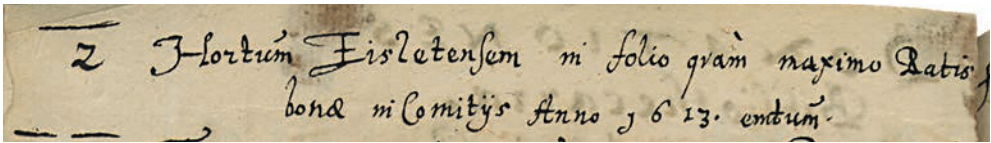 2 Hortum̃ Eisletensem in folio quàm maximo Ratis
bonæ in Comitijs Anno 1613. emtum̃.